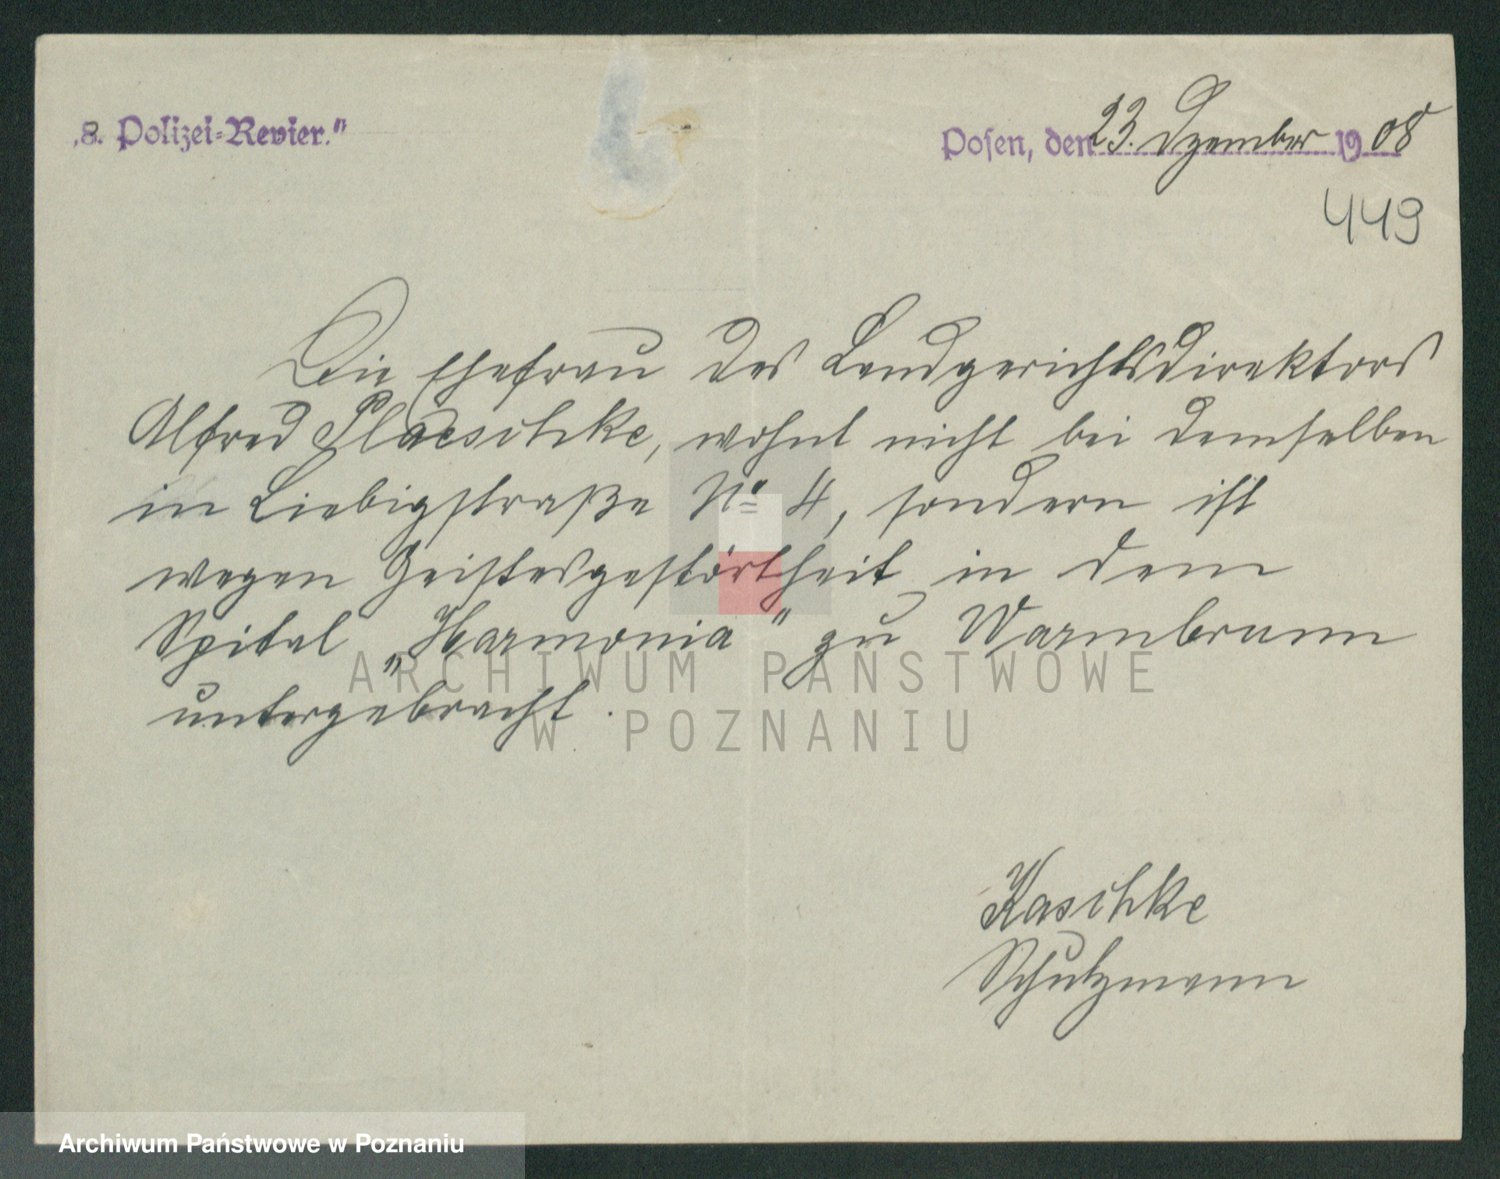 „8. Polizei-Revier."
Posen, den 23. Dezember 1908
449
Die Ehefrau des Landgerichtsdirektors
Alfred Plaeschke, wohnt nicht bei demselben
in Liebigstraße No 4, sondern ist
wegen Geistesgestörtheit in dem
Spital „Harmonia" zu Warmbrunn
untergebracht.
Kaschke
Schutzmann
ARCHIWUM PAŃSTWOWE
W POZNANIU
Archiwum Państwowe w Poznaniu